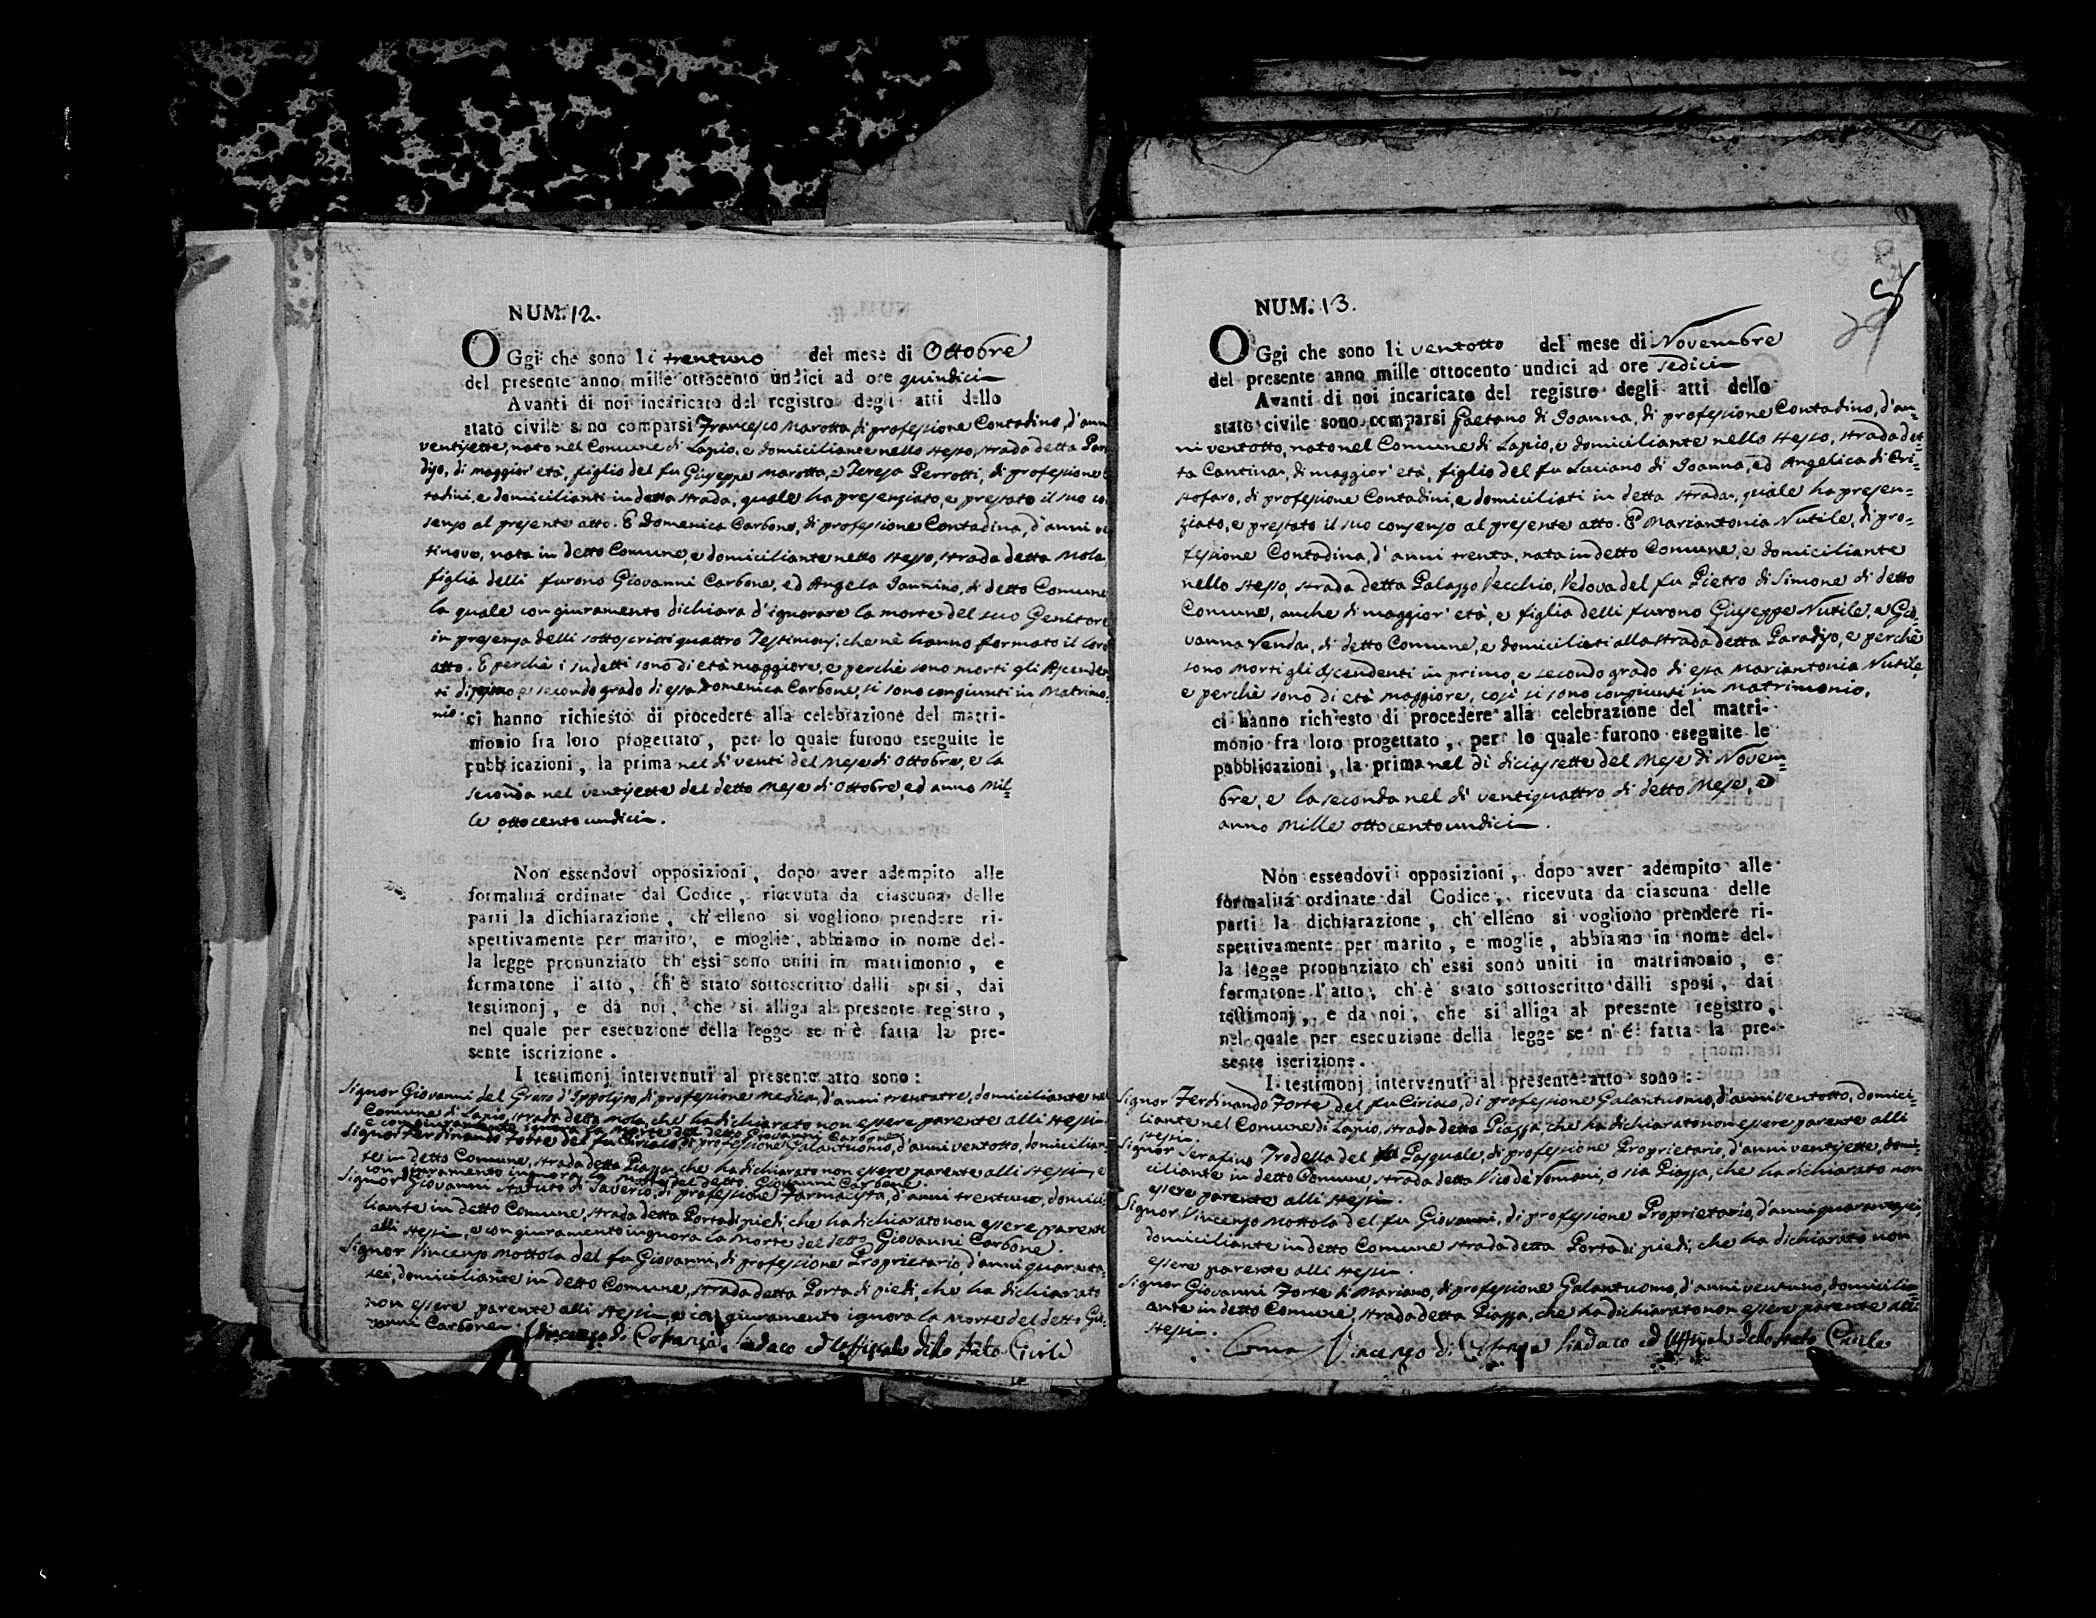 NUM. 12.
OGgi che sono li trentuno del mese di Ottobre
del presente anno mille ottocento undici ad ore quindici
Avanti di noi incaricato del registro degli atti dello
stato civile sono comparsi Francesco Marotta, di professione Contadino, d'anni
ventisette, nato nel Comune di Lapio, e domiciliante nello stesso, strada detta Para
diso, di maggior' età, figlio del fu Giuseppe Marotta, e Teresa Perrotti, di professione
tadini, e domicilianti in detta strada, quale ha presenziato, e prestato il suo con
senso al presente atto. E Domenica Carbone, di professione Contadina, d'anni ven
tinove, nata in detto Comune, e domiciliante nello stesso, strada detta Mola,
figlia delli furono Giovanni Carbone, ed Angela Iannino, di detto Comune
la quale con giuramento dichiara d'ignorare la morte del suo Genitore
in presenza delli sottoscritti quattro Testimonj, che nè hanno formato il loro
atto. E perchè i sudetti sono di età maggiore, e perchè sono morti gli Ascenden
ti di primo e secondo grado di essa Domenica Carbone, si sono congiunti in Matrimo-
nio. ci hanno richiesto di procedere alla celebrazione del matri-
monio fra loro progettato, per lo quale furono eseguite le
pubblicazioni, la prima nel dì venti del Mese di Ottobre, e la
seconda nel ventisette del detto Mese di Ottobre, ed anno Mil=
le ottocento undici.
Non essendovi opposizioni, dopo aver adempito alle
formalitá ordinate dal Codice, ricevuta da ciascuna delle
parti la dichiarazione, ch' elleno si vogliono prendere ri-
spettivamente per marito, e moglie, abbiamo in nome del-
la legge pronunziato ch' essi sono uniti in matrimonio, e
formatone l' atto, ch' è stato sottoscritto dalli sposi, dai
testimonj, e da noi, che si alliga al presente registro,
nel quale per esecuzione della legge se n' è fatta la pre-
sente iscrizione.
I testimonj intervenuti al presente atto sono:
Signor Giovanni del Grosso d'Ippolijto, di professione Medico, d'anni trentatre, domiciliante nel
Comune di Lapio, strada detta Mola, che ha dichiarato non essere parente alli stessi
e con giuramento ignora la morte del detto Giovanni Carbone
Signor Ferdinando Forte del fu Ciriaco, di professione Galantuomo, d'anni ventotto, domicilian
te in detto Comune, strada detta Piazza, che ha dichiarato non essere parente alli stessi, e
con giuramento ignora la morte del detto Giovanni Carbone.
Signor Giovanni Statuto di Saverio, di professione Farmacista, d'anni trentuno, domici
liante in detto Comune, strada detta Porta di piedi, che ha dichiarato non essere parente
alli stessi, e con giuramento ignora la morte del detto Giovanni Carbone.
Signor Vincenzo Mottola del fu Giovanni, di professione Proprietario, d'anni quaranta-
sei, domiciliante in detto Comune, strada detta Porta di piedi, che ha dichiarato
non essere parente alli stessi, e con giuramento ignora la morte del detto Gio-
vanni Carbone. Vincenzo di Costanza Sindaco ed Uffiziale dello Stato Civile
NUM. 13.
OGgi che sono li ventotto del mese di Novembre
del presente anno mille ottocento undici ad ore sedici
Avanti di noi incaricato del registro degli atti dello
stato civile sono comparsi Gaetano di Ioanna, di professione Contadino, d'an=
ni ventotto, nato nel Comune di Lapio, e domiciliante nello stesso, strada det=
ta Cantina, di maggior' età, figlio del fu Luciano di Ioanna, ed Angelica di Cri=
stofaro, di professione Contadini, e domiciliati in detta strada, quale ha presen=
ziato, e prestato il suo consenso al presente atto. E Mariantonia Nutile, di pro=
fessione Contadina, d'anni trenta, nata in detto Comune, e domiciliante
nello stesso, strada detta Palazzo Vecchio, Vedova del fu Pietro di Simone di detto
Comune, anche di maggior' età, e figlia delli furono Giuseppe Nutile, e Gio=
vanna Venda, di detto Comune, e domiciliati alla strada detta Paradiso, e perchè
sono morti gli Ascendenti in primo, e secondo grado di essa Mariantonia Nutile,
e perchè sono di età maggiore, così si sono congiunti in Matrimonio.
ci hanno richiesto di procedere alla celebrazione del matri-
monio fra loro progettato, per lo quale furono eseguite le
pubblicazioni, la prima nel dì diciassette del Mese di Novem=
bre, e la seconda nel dì ventiquattro di detto Mese, ed
anno Mille ottocento undici.
Non essendovi opposizioni, dopo aver adempito alle
formalitá ordinate dal Codice, ricevuta da ciascuna delle
parti la dichiarazione, ch' elleno si vogliono prendere ri-
spettivamente per marito, e moglie, abbiamo in nome del-
la legge pronunziato ch' essi sono uniti in matrimonio, e
formatone l' atto, ch' è stato sottoscritto dalli sposi, dai
testimonj, e da noi, che si alliga al presente registro,
nel quale per esecuzione della legge se n' é fatta la pre-
sente iscrizione.
I testimonj intervenuti al presente atto sono:
Signor Ferdinando Forte del fu Ciriaco, di professione Galantuomo, d'anni ventotto, domici=
liante nel Comune di Lapio, strada detta Piazza che ha dichiarato non essere parente alli
stessi.
Signor Serafino Trodella del Pasquale, di professione Proprietario, d'anni ventisette, domi=
ciliante in detto Comune, strada detta Vico de' Romani, o sia Piazza, che ha dichiarato non
essere parente alli stessi.
Signor Vincenzo Mottola del fu Giovanni, di professione Proprietario, d'anni quarantasei,
domiciliante in detto Comune strada detta Porta di piedi, che ha dichiarato non
essere parente alli stessi.
Signor Giovanni Forte di Mariano, di professione Galantuomo, d'anni ventuno, domicili=
ante in detto Comune, strada detta Piazza, che ha dichiarato non essere parente alli
stessi.
Vincenzo di Costanza Sindaco ed Uffiziale dello Stato Civile